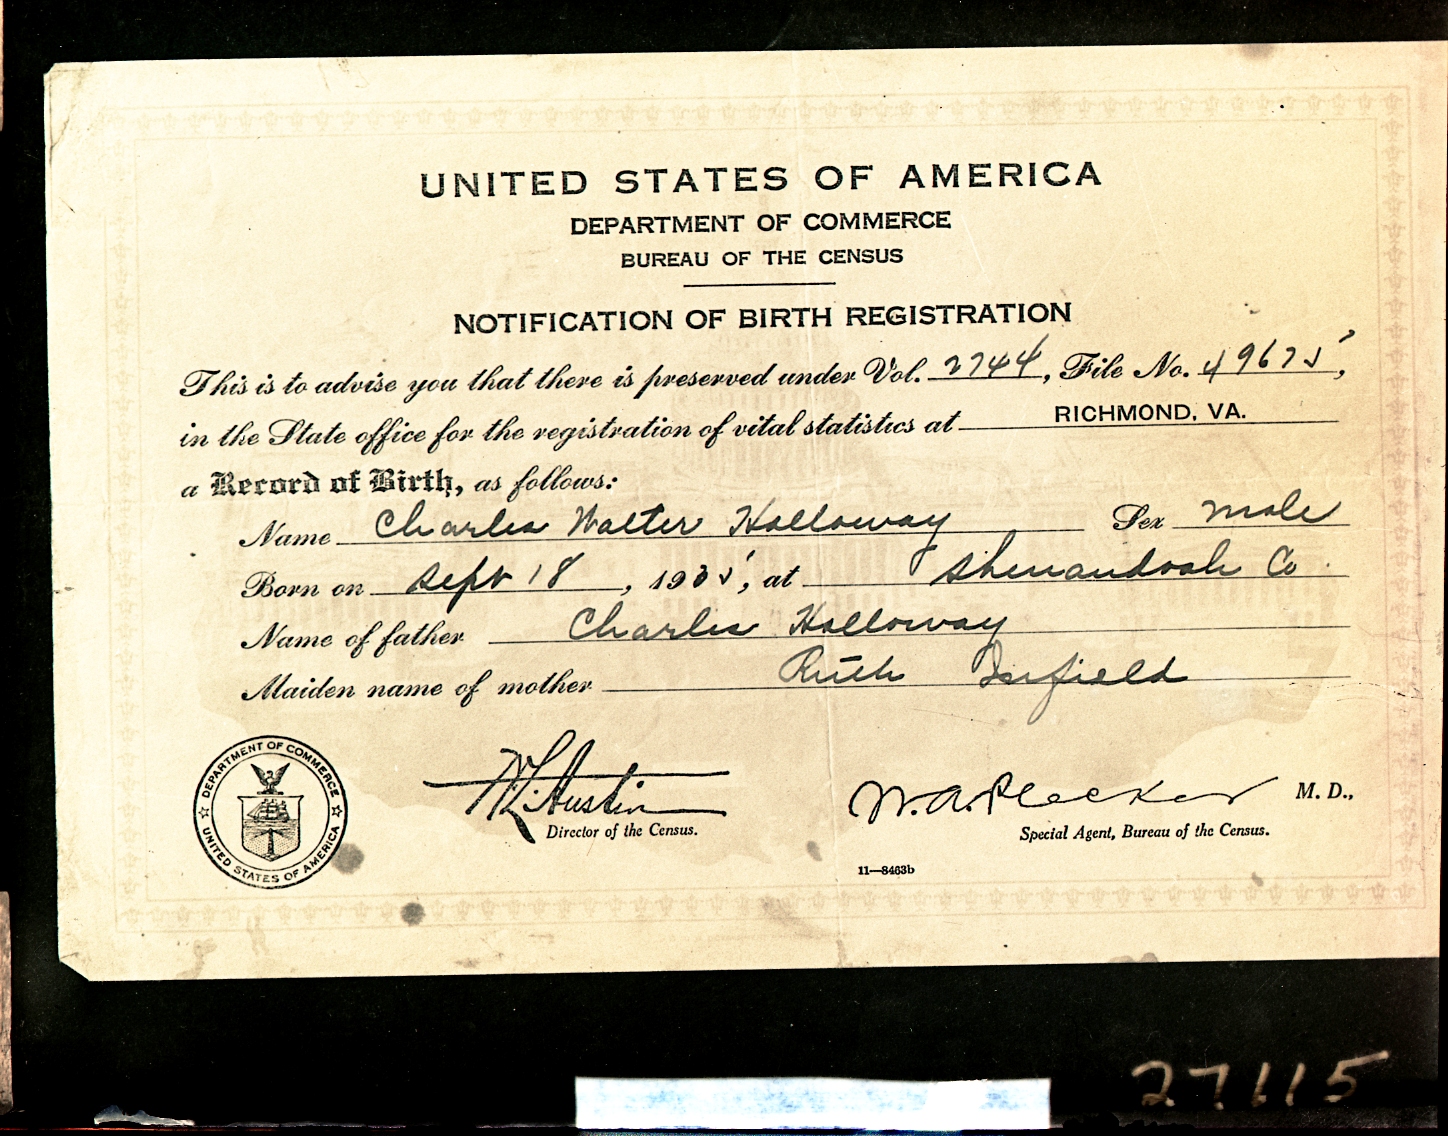 UNITED STATES OF AMERICA
DEPARTMENT OF COMMERCE
BUREAU OF THE CENSUS
NOTIFICATION OF BIRTH REGISTRATION
This is to advise you that there is preserved under Vol. 2744, File No. 49675,
in the State office for the registration of vital statistics at RICHMOND, VA.
a Record of Birth, as follows:
Name Charles Walter Holloway Sex male
Born on Sept 18, 1935, at Shenandoah Co
Name of father Charles Holloway
Maiden name of mother Ruth
DEPARTMENT OF COMMERCE
UNITED STATES OF AMERICA
W. L. Austin
Director of the Census.
W. A. Plecker M. D.,
Special Agent, Bureau of the Census.
11—8463b
27115